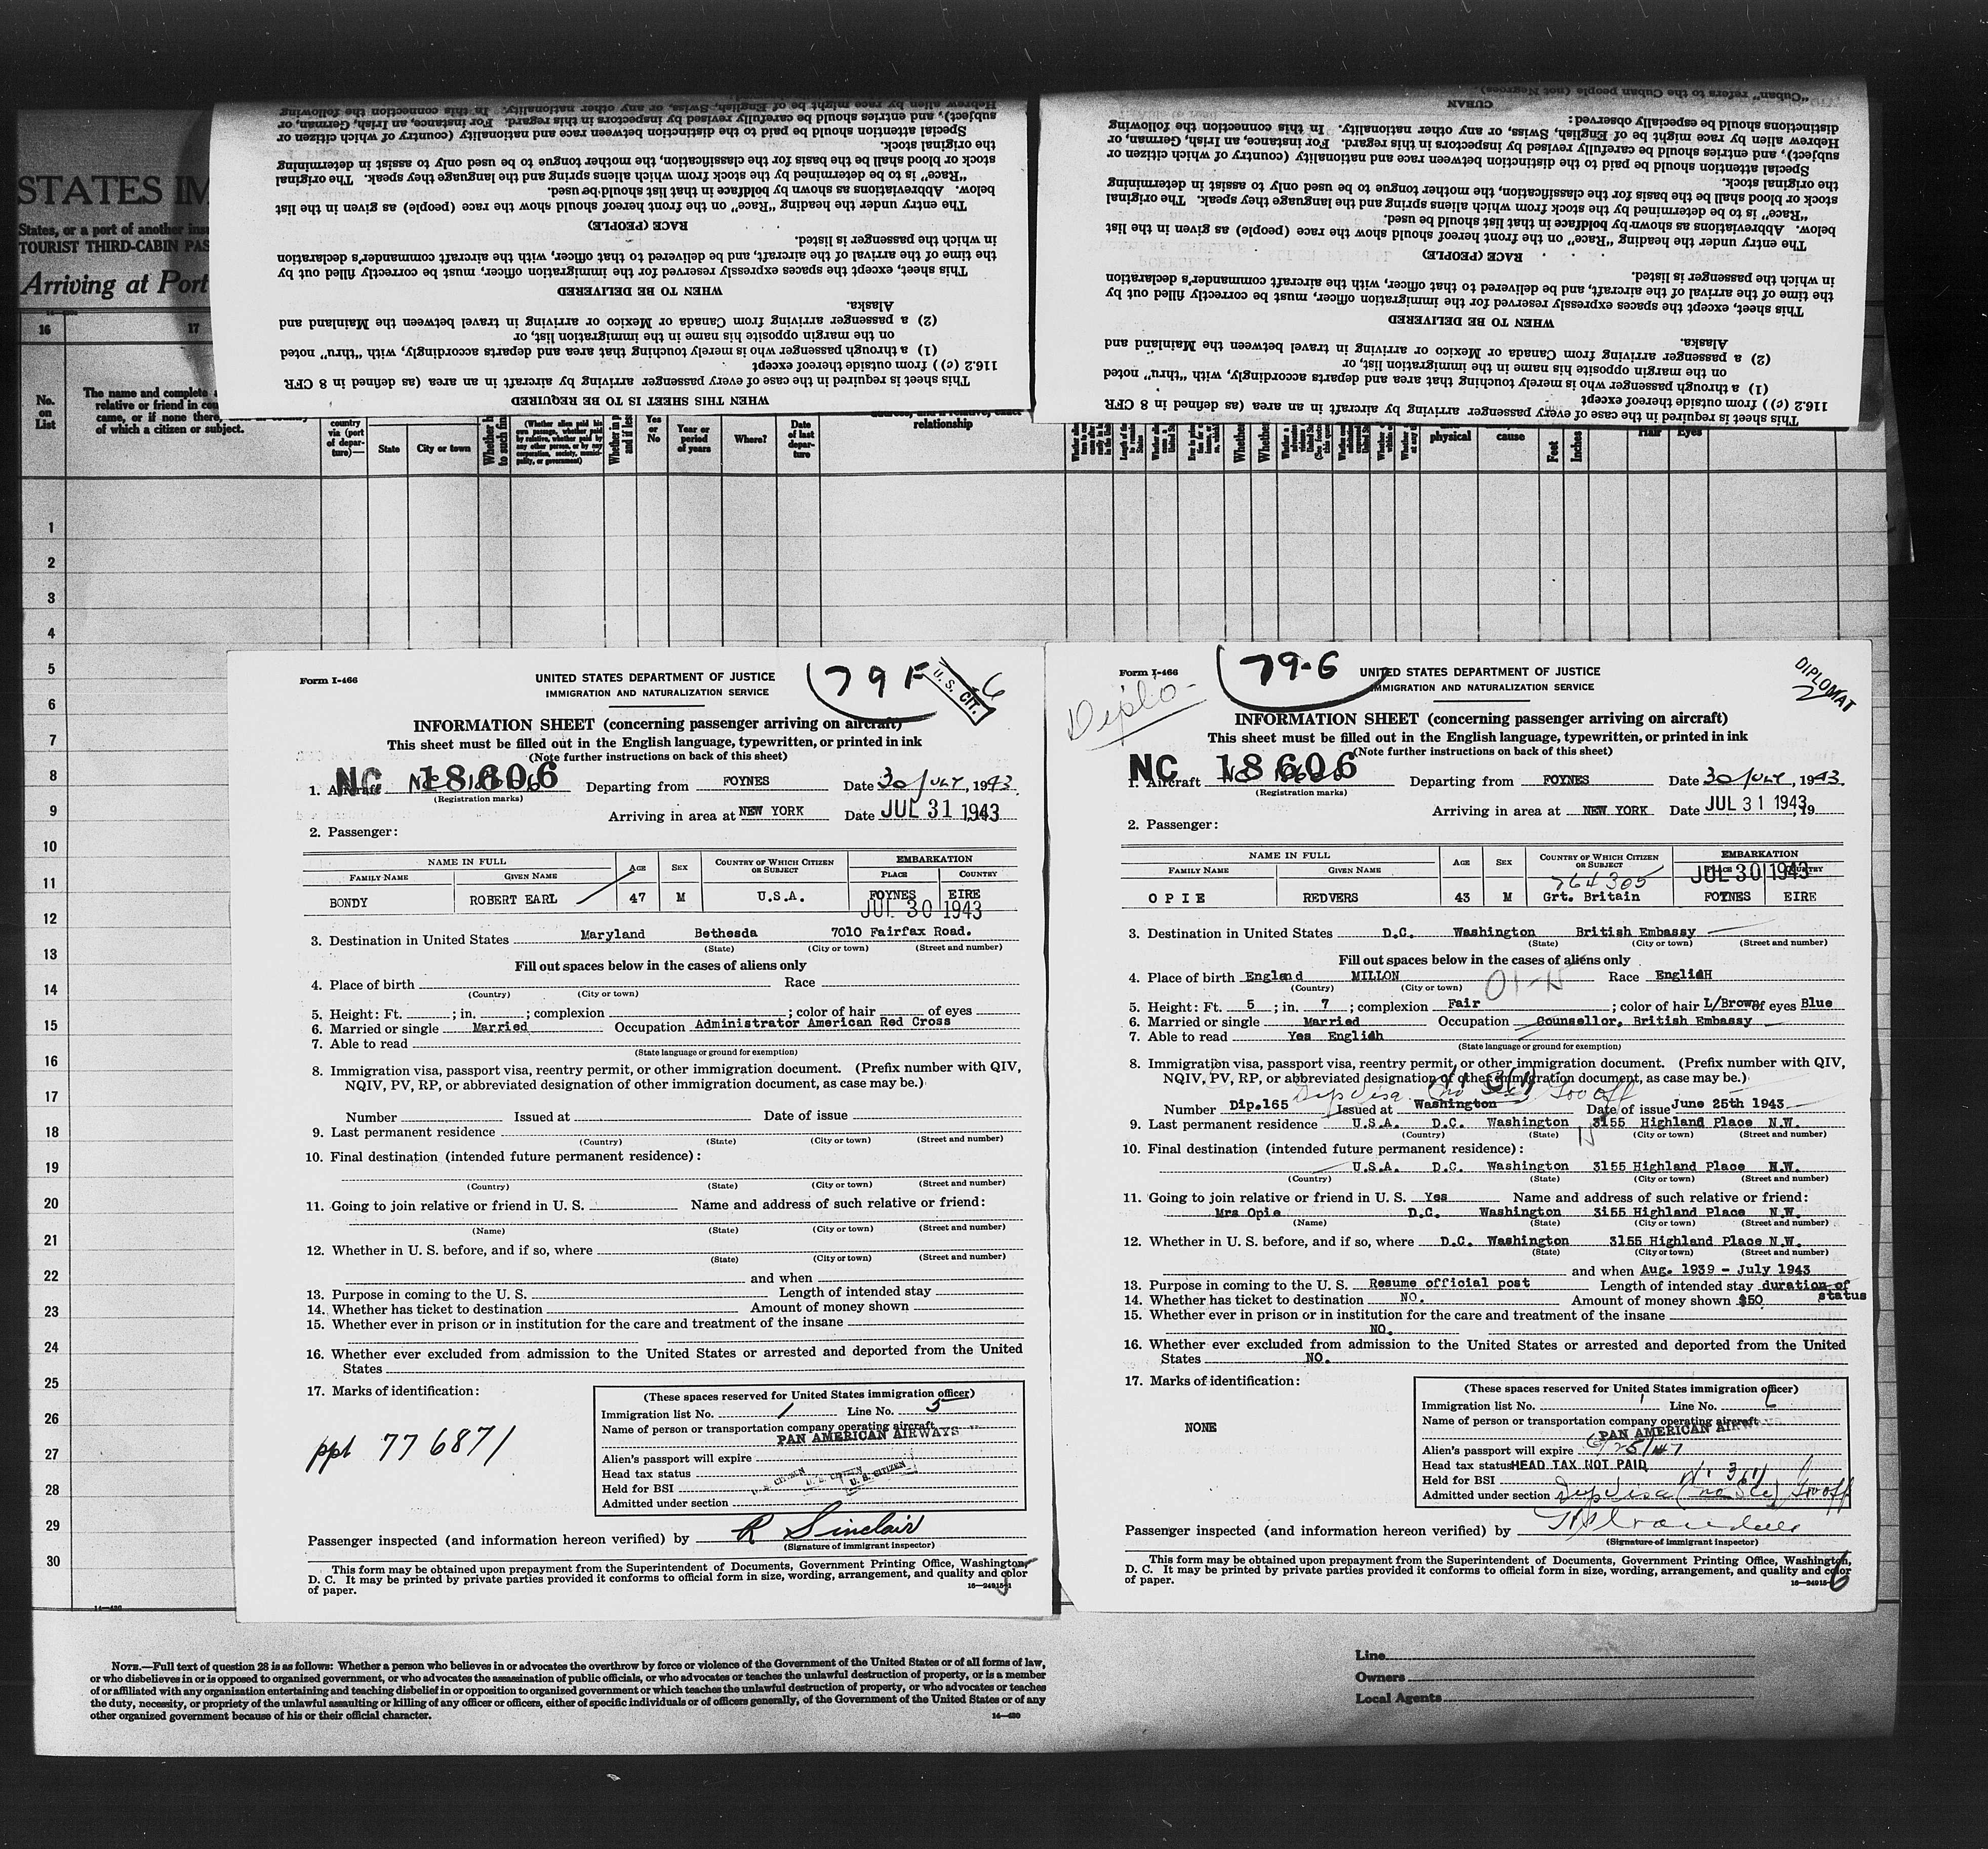 STATES IM
States, or a port of another ins
TOURIST THIRD-CABIN PAS
Arriving at Port
16
17
No. on List
The name and complete a
relative or friend in cou
came, or if none there,
of which a citizen or subject.
country via (port of depar-ture)—
State
City or town
(Whether alien paid his own passage, whether paid by relative, whether paid by any other person, or by any corporation, society, munici-pality, or government)
Yes or No
Year or period of years
Where?
Date of last depar-ture
relationship
physical
cause
Feet
Inches
Hair
Eyes
WHEN THIS SHEET IS TO BE REQUIRED
This sheet is required in the case of every passenger arriving by aircraft in an area (as defined in 8 CFR
116.2 (c)) from outside thereof except
(1) a through passenger who is merely touching that area and departs accordingly, with "thru" noted
on the margin opposite his name in the immigration list, or
(2) a passenger arriving from Canada or Mexico or arriving in travel between the Mainland and
Alaska.
WHEN TO BE DELIVERED
This sheet, except the spaces expressly reserved for the immigration officer, must be correctly filled out by
the time of the arrival of the aircraft, and be delivered to that officer, with the aircraft commander's declaration
in which the passenger is listed.
RACE (PEOPLE)
The entry under the heading "Race" on the front hereof should show the race (people) as given in the list
below. Abbreviations as shown by boldface in that list should be used.
"Race" is to be determined by the stock from which aliens spring and the language they speak. The original
stock or blood shall be the basis for the classification, the mother tongue to be used only to assist in determining
the original stock.
Special attention should be paid to the distinction between race and nationality (country of which citizen or
subject), and entries should be carefully revised by inspectors in this regard. For instance, an Irish, German, or
Hebrew alien by race might be of English, Swiss, or any other nationality. In this connection the following
This sheet is required in the case of every passenger arriving by aircraft in an area (as defined in 8 CFR
116.2 (c)) from outside thereof except
(1) a through passenger who is merely touching that area and departs accordingly, with "thru" noted
on the margin opposite his name in the immigration list, or
(2) a passenger arriving from Canada or Mexico or arriving in travel between the Mainland and
Alaska.
WHEN TO BE DELIVERED
This sheet, except the spaces expressly reserved for the immigration officer, must be correctly filled out by
the time of the arrival of the aircraft, and be delivered to that officer, with the aircraft commander's declaration
in which the passenger is listed.
RACE (PEOPLE)
The entry under the heading "Race" on the front hereof should show the race (people) as given in the list
below. Abbreviations as shown by boldface in that list should be used.
"Race" is to be determined by the stock from which aliens spring and the language they speak. The original
stock or blood shall be the basis for the classification, the mother tongue to be used only to assist in determining
the original stock.
Special attention should be paid to the distinction between race and nationality (country of which citizen or
subject), and entries should be carefully revised by inspectors in this regard. For instance, an Irish, German, or
Hebrew alien by race might be of English, Swiss, or any other nationality. In this connection the following
distinctions should be especially observed:
CUBAN
"Cuban" refers to the Cuban people (not Negroes).
1
2
3
4
5
6
7
8
9
10
11
12
13
14
15
16
17
18
19
20
21
22
23
24
25
26
27
28
29
30
Form I-466
79 F
U.S. CIT.
UNITED STATES DEPARTMENT OF JUSTICE
IMMIGRATION AND NATURALIZATION SERVICE
INFORMATION SHEET (concerning passenger arriving on aircraft)
This sheet must be filled out in the English language, typewritten, or printed in ink
(Note further instructions on back of this sheet)
1. Aircraft NC 18606 Departing from FOYNES Date 30 JULY, 1943.
(Registration marks)
Arriving in area at NEW YORK Date JUL 31 1943
2. Passenger:
NAME IN FULL AGE SEX COUNTRY OF WHICH CITIZEN OR SUBJECT EMBARKATION
FAMILY NAME GIVEN NAME PLACE COUNTRY
BONDY ROBERT EARL 47 M U.S.A. FOYNES EIRE
JUL 30 1943
3. Destination in United States Maryland Bethesda 7010 Fairfax Road.
(State) (City or town) (Street and number)
Fill out spaces below in the cases of aliens only
4. Place of birth Race
(Country) (City or town)
5. Height: Ft. ; in. ; complexion ; color of hair of eyes
6. Married or single Married Occupation Administrator American Red Cross
7. Able to read
(State language or ground for exemption)
8. Immigration visa, passport visa, reentry permit, or other immigration document. (Prefix number with QIV,
NQIV, PV, RP, or abbreviated designation of other immigration document, as case may be.)
Number Issued at Date of issue
9. Last permanent residence
(Country) (State) (City or town) (Street and number)
10. Final destination (intended future permanent residence):
(Country) (State) (City or town) (Street and number)
11. Going to join relative or friend in U. S. Name and address of such relative or friend:
(Name) (State) (City or town) (Street and number)
12. Whether in U. S. before, and if so, where
(State) (City or town) (Street and number)
and when
13. Purpose in coming to the U. S. Length of intended stay
14. Whether has ticket to destination Amount of money shown
15. Whether ever in prison or in institution for the care and treatment of the insane
16. Whether ever excluded from admission to the United States or arrested and deported from the United
States
17. Marks of identification:
ppt 776871
(These spaces reserved for United States immigration officer)
Immigration list No. 1 Line No. 5
Name of person or transportation company operating aircraft
PAN AMERICAN AIRWAYS
Alien's passport will expire
Head tax status
Held for BSI U. S. CITIZEN
Admitted under section
Passenger inspected (and information hereon verified) by R Sinclair
(Signature of immigrant inspector)
This form may be obtained upon prepayment from the Superintendent of Documents, Government Printing Office, Washington,
D. C. It may be printed by private parties provided it conforms to official form in size, wording, arrangement, and quality and color
of paper.
16—24915-1
Form I-466
79-G
Diplo-
DIPLOMAT
UNITED STATES DEPARTMENT OF JUSTICE
IMMIGRATION AND NATURALIZATION SERVICE
INFORMATION SHEET (concerning passenger arriving on aircraft)
This sheet must be filled out in the English language, typewritten, or printed in ink
(Note further instructions on back of this sheet)
1. Aircraft NC 18606 Departing from FOYNES Date 30 JULY, 1943.
(Registration marks)
Arriving in area at NEW YORK Date JUL 31 1943, 19
2. Passenger:
NAME IN FULL AGE SEX COUNTRY OF WHICH CITIZEN OR SUBJECT EMBARKATION
FAMILY NAME GIVEN NAME 764305 PLACE COUNTRY JUL 30 1943
OPIE REDVERS 43 M Grt. Britain FOYNES EIRE
3. Destination in United States D.C. Washington British Embassy
(State) (City or town) (Street and number)
Fill out spaces below in the cases of aliens only
4. Place of birth England MILLON Race EnglisH
(Country) (City or town)
5. Height: Ft. 5 ; in. 7 ; complexion Fair ; color of hair L/Brown of eyes Blue
6. Married or single Married Occupation Counsellor, British Embassy
7. Able to read Yes English
(State language or ground for exemption)
8. Immigration visa, passport visa, reentry permit, or other immigration document. (Prefix number with QIV,
NQIV, PV, RP, or abbreviated designation of other immigration document, as case may be.)
Number Dip.165 Issued at Washington Date of issue June 25th 1943
9. Last permanent residence U.S.A. D.C. Washington 3155 Highland Place N.W.
(Country) (State) (City or town) (Street and number)
10. Final destination (intended future permanent residence):
U.S.A. D.C. Washington 3155 Highland Place N.W.
(Country) (State) (City or town) (Street and number)
11. Going to join relative or friend in U. S. Yes Name and address of such relative or friend:
Mrs Opie D.C. Washington 3155 Highland Place N.W.
(Name) (State) (City or town) (Street and number)
12. Whether in U. S. before, and if so, where D.C. Washington 3155 Highland Place N.W.
(State) (City or town) (Street and number)
and when Aug. 1939 - July 1943
13. Purpose in coming to the U. S. Resume official post Length of intended stay duration of status
14. Whether has ticket to destination NO. Amount of money shown $50
15. Whether ever in prison or in institution for the care and treatment of the insane
NO.
16. Whether ever excluded from admission to the United States or arrested and deported from the United
States NO.
17. Marks of identification:
NONE
(These spaces reserved for United States immigration officer)
Immigration list No. 1 Line No. 6
Name of person or transportation company operating aircraft
PAN AMERICAN AIRWAYS
Alien's passport will expire 6/25/47
Head tax status HEAD TAX NOT PAID
Held for BSI
Admitted under section Dip visa
Passenger inspected (and information hereon verified) by
(Signature of immigrant inspector)
This form may be obtained upon prepayment from the Superintendent of Documents, Government Printing Office, Washington,
D. C. It may be printed by private parties provided it conforms to official form in size, wording, arrangement, and quality and color
of paper.
16—24915-1
6
14—430
NOTE.—Full text of question 28 is as follows: Whether a person who believes in or advocates the overthrow by force or violence of the Government of the United States or of all forms of law,
or who disbelieves in or is opposed to organized government, or who advocates the assassination of public officials, or who advocates or teaches the unlawful destruction of property, or is a member
of or affiliated with any organization entertaining and teaching disbelief in or opposition to organized government or which teaches the unlawful destruction of property, or who advocates or teaches
the duty, necessity, or propriety of the unlawful assaulting or killing of any officer or officers, either of specific individuals or of officers generally, of the Government of the United States or of any
other organized government because of his or their official character.
14—430
Line
Owners
Local Agents